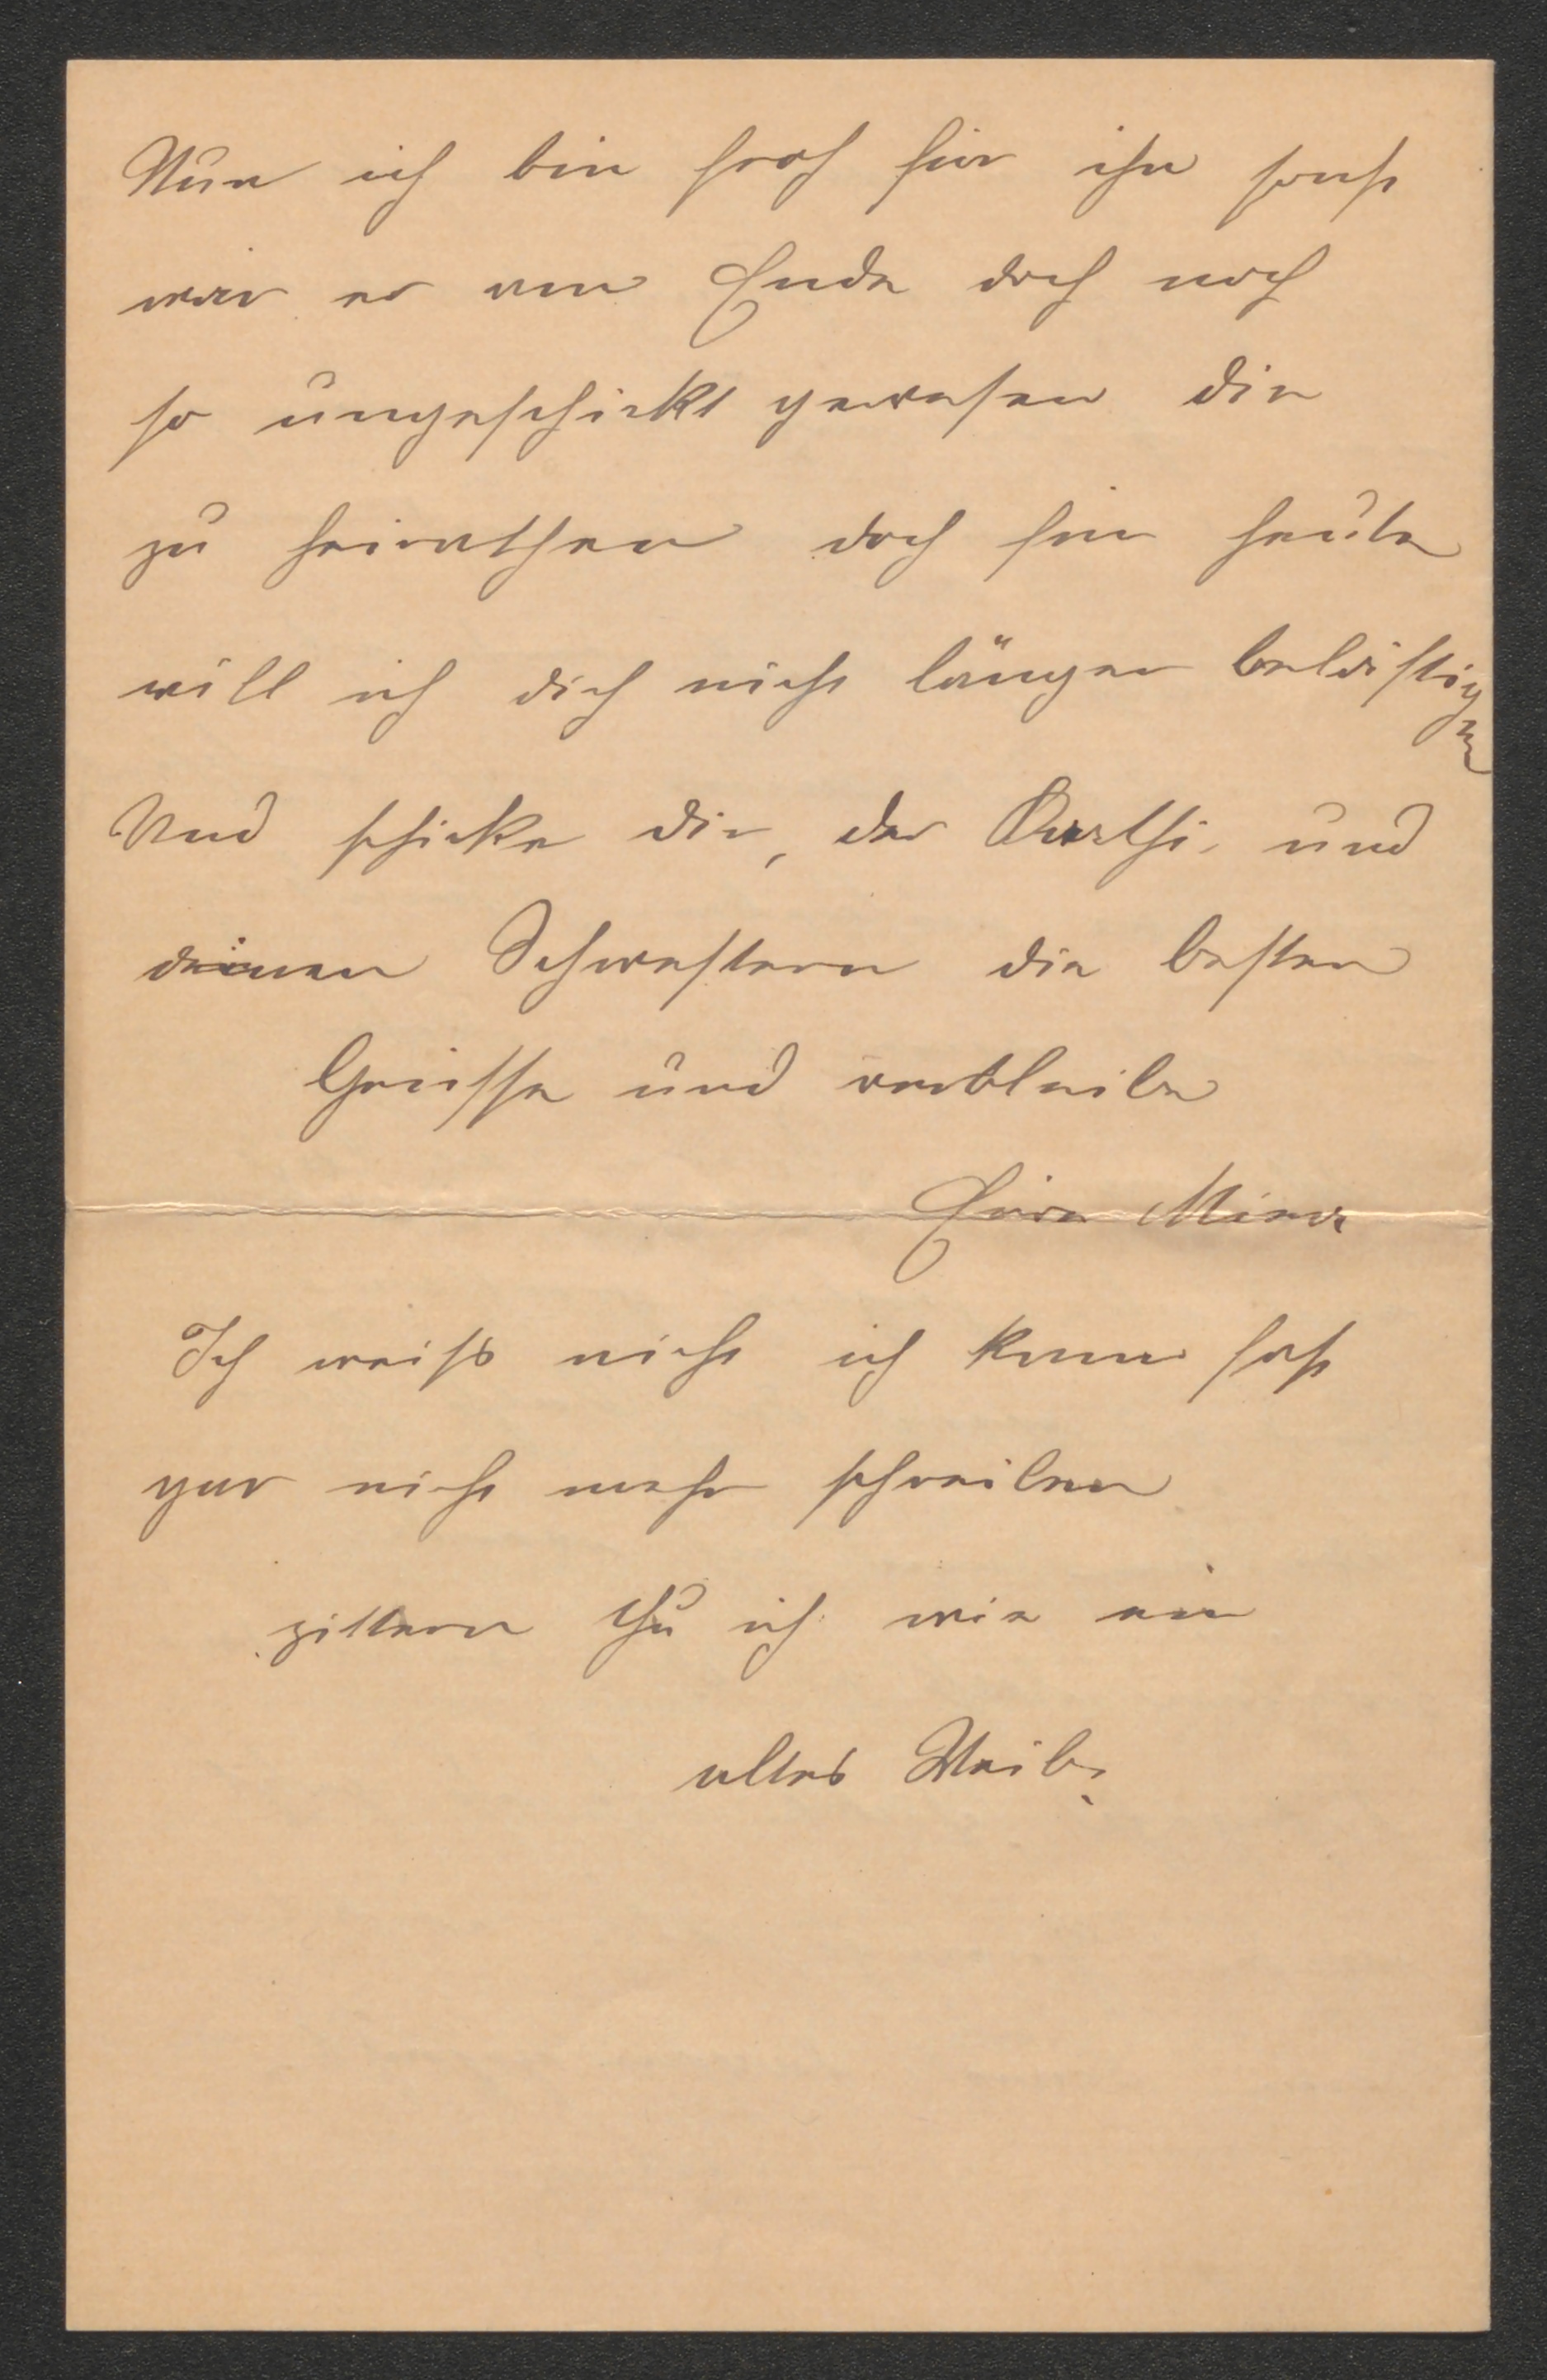 Nun ich bin froh für ihn sonst
wär er am Ende doch noch
so ungeschickt gewesen die
zu heirathen doch für heute
will ich dich nicht länger belästigen
Und schicke dir, der Berthi und
deinen Schwestern die besten
Grüsse und verbleibe
Eure Mina
Ich weiß nicht ich kann fast
gar nicht mehr schreiben
zittern thu ich wie ein
altes Weib.